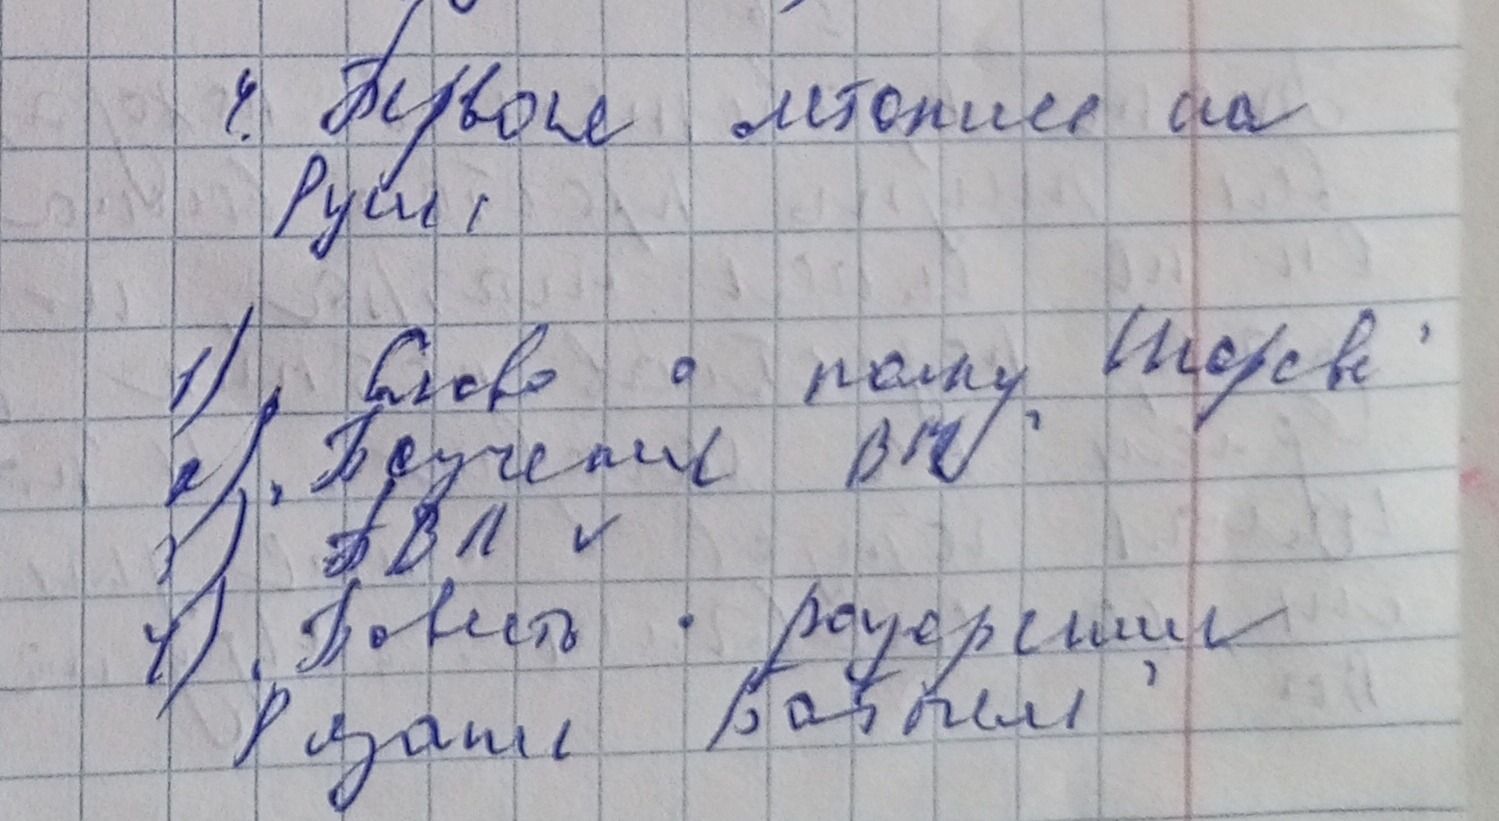 4. Первое летописе на
Руси,
1) , Слово о полку Игореве '
2) , Поучение ВМ '
3) ПВЛ ✓
4) , Повесть о разорении
Рязани Батыем '